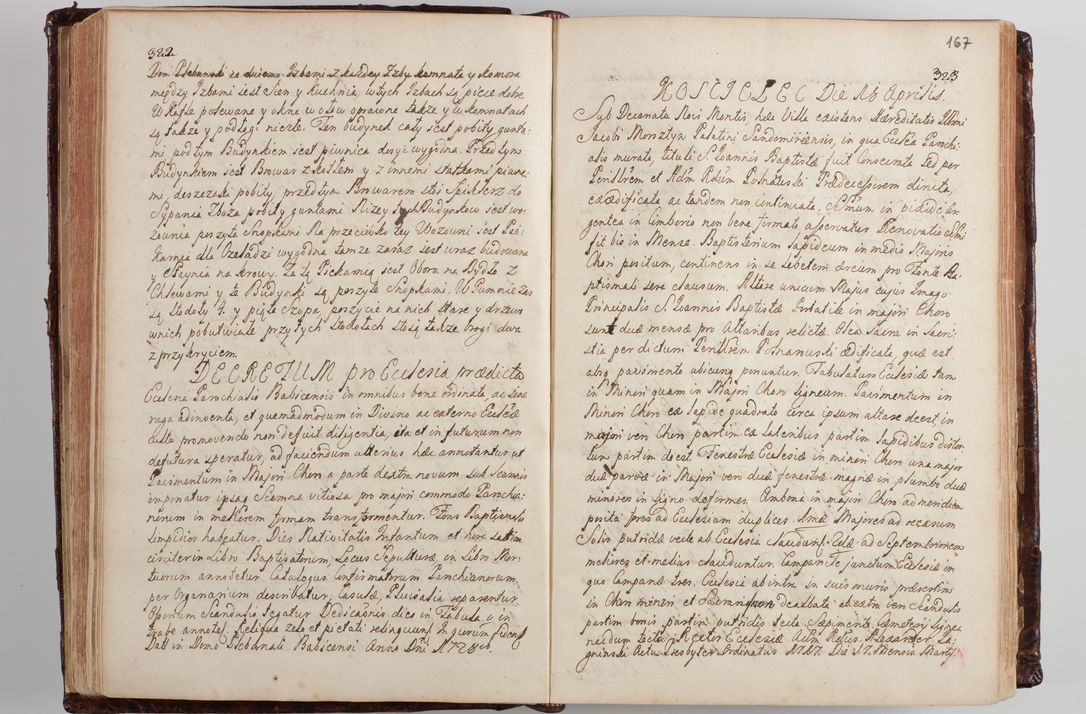 322
Dom Plebanski ze dwiema Izbami z kazdey Izby kamnata y komora
między Izbami iest Sien y kuchnia, w tych Izbach są piece dobre
W Kafle polewane y okna w ołow oprawne także y w kamnatach
są także y podłogi niezłe. Ten budynek cały iest pobity gunta-
mi pod tym Budynkiem iest piwnica dosyć wygodna. Przed tym
Budynkiem iest Browar z kotłem y z innemi statkami piwne-
mi, deszczkami pobity, przed tym Browarem stoi Spiklerz do
Sypania Zboża pobity guntami Niżey tych Budynkow iest wo-
zownia poszyta snopkami Na przeciwko tey Wozowni iest Pie-
karnia dla Czeladzi wygodna tamze zaraz iest wraz budowana
y Staynia na krowy. Za tą Piekarnią iest Obora na Bydło z
Chlewami y te Budynki są poszyte Snopkami. W Gumnie zas
są stodoły 4. y piąta szopa, poszycie na nich stare y drzewo
w nich pobutwiałe przy tych Stodołach stoią także brogi dwa
z przykryciem.
DECRETUM pro Ecclesia prædicta
Ecclesia Parochialis Babicensis in omnibus bene ordinata, ac sine
ruga adinventa, et quemadmodum in Divino ac externo Ecclesiæ
cultu promovendo non defuit diligentia, ita et in futurum non
defutura speratur, ad faciendum ulterius hæc annotantur ut
Pavimentum in Majori Choro a parte dextra novum sub Scamnis
imponatur ipsaq Scamna vitiosa pro majori commodo Parochia-
norum in meliorem formam transformentur. Fons Baptismalis
simplicior habeatur. Dies Nativitatis Infantum et hora saltim
circiter in Libro Baptisatorum, Locus Sepulturæ, in Libro Mor-
tuorum annotetur. Catalogus confirmatorum Parochianorum,
per Organarium describatur, Casulæ, Pluvialia reparentur.
Offorum Scandalis tegatur Dedicaonis dies in Tabula v in
trabe annotes. Reliqua zelo et pietati relinquunt in quorum fidem
Datt in Domo Plebanali Babicensi Anno Dni 1728io.
167
323
KOSCIELEC Die 18 Aprilis.
Sub Decanatu Novi Montis, hæc Villa existens Hæreditatis Illmi
Jacobi Morsztyn Palatini Sandomiriensis, in qua Ecclesia Parochi-
alis murata, tituli S. Joannis Baptistæ fuit Consecrata sed per
Perillrem et Rdm Rdum Posnaturski Prædecessorem diruta,
exædificata ac tandem non continuata. SSmum in pixide Ar-
gentea in Ciborio non bene firmato asservatur Renovatio SSmi
fit bis in Mense. Baptisterium lapideum in medio Majoris
Chori positum, continens in se lebetem æreum pro Fonte Ba-
ptismali sera clausum. Altare unicum Majus cujus Imago
Principalis S. Joannis Baptistæ Portatile in majori Choro
sunt duæ mensæ pro Altaribus relictæ Olea Sacra in Sacri-
stia per dictum Perillrem Posnanurski ædificata, quæ est
absq pavimento ubicunq ponuntur. Tabulatum Ecclesiæ tam
in Minori quam in Majori Choro ligneum. Pavimentum in
Minori Choro ex lapide quadrato circa ipsum altare deest, in
majori vero Choro partim ex lateribus, partim lapidibus distor-
tum partim deest Fenestræ Ecclesiæ in minori Choro una major
duæ parvæ in Majori vero duæ fenestræ magnæ in plumbo duæ
minores in ligno deformes. Ambona in majori Choro ad meridiem
posita fores ad Ecclesiam duplices. Unæ Majores ad occasum
Solis putridæ vecte ab Ecclesia clauduntr. Aliæ ad Septemtrionem
meliores et medius clauduntur. Campanile junctum Ecclesiæ in
quo Campanæ tres. Ecclesia ab intra in suis muris præsertim
in Choro minori et Sacrario non dealbata ab extra vero Scandulis
partim bonis partim putridis tecta Sæpimenta Cæmeterii lignea
nondum tecta Rector Ecclesiæ Adm Rdus Alexander Za-
grinski Actu Presbyter Ordinatus 1717. Die 17. Mensis Martij